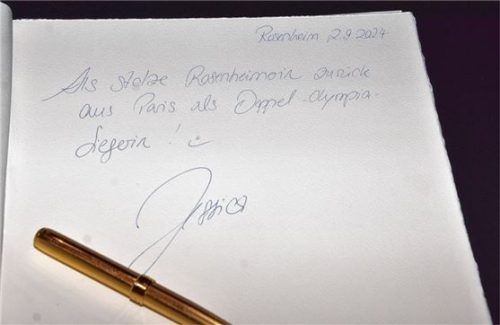 Rosenheim 2.9.2024
Als stolze Rosenheimerin zurück
aus Paris als Doppel-Olympia-
Siegerin!
Jessica